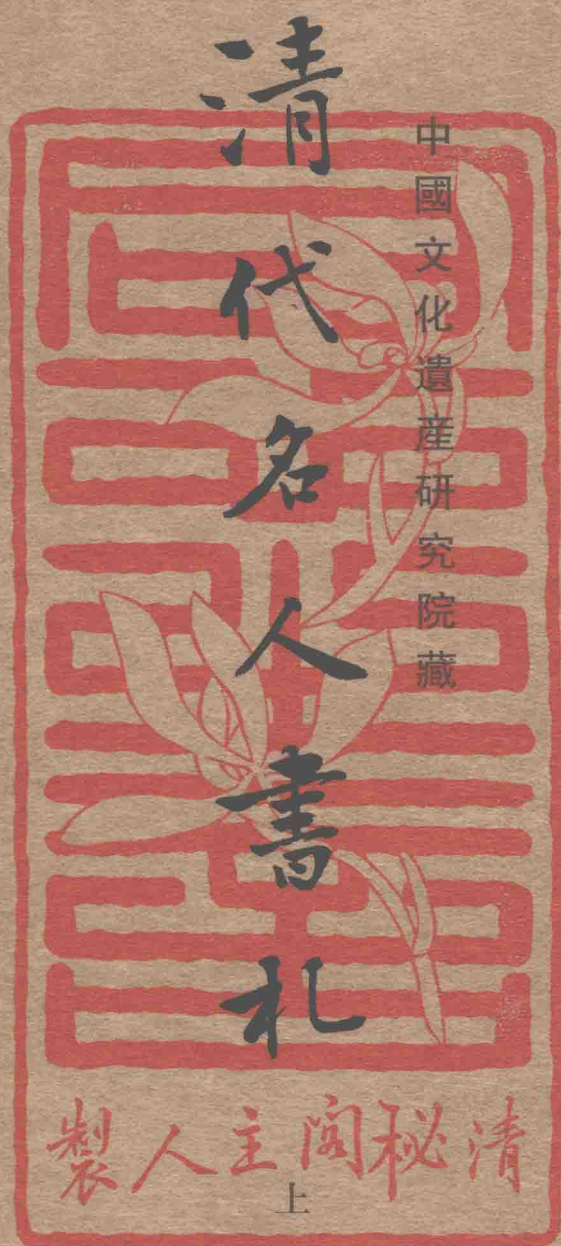 中國文化遺産研究院藏
清代名人書札
上
清秘閣主人製